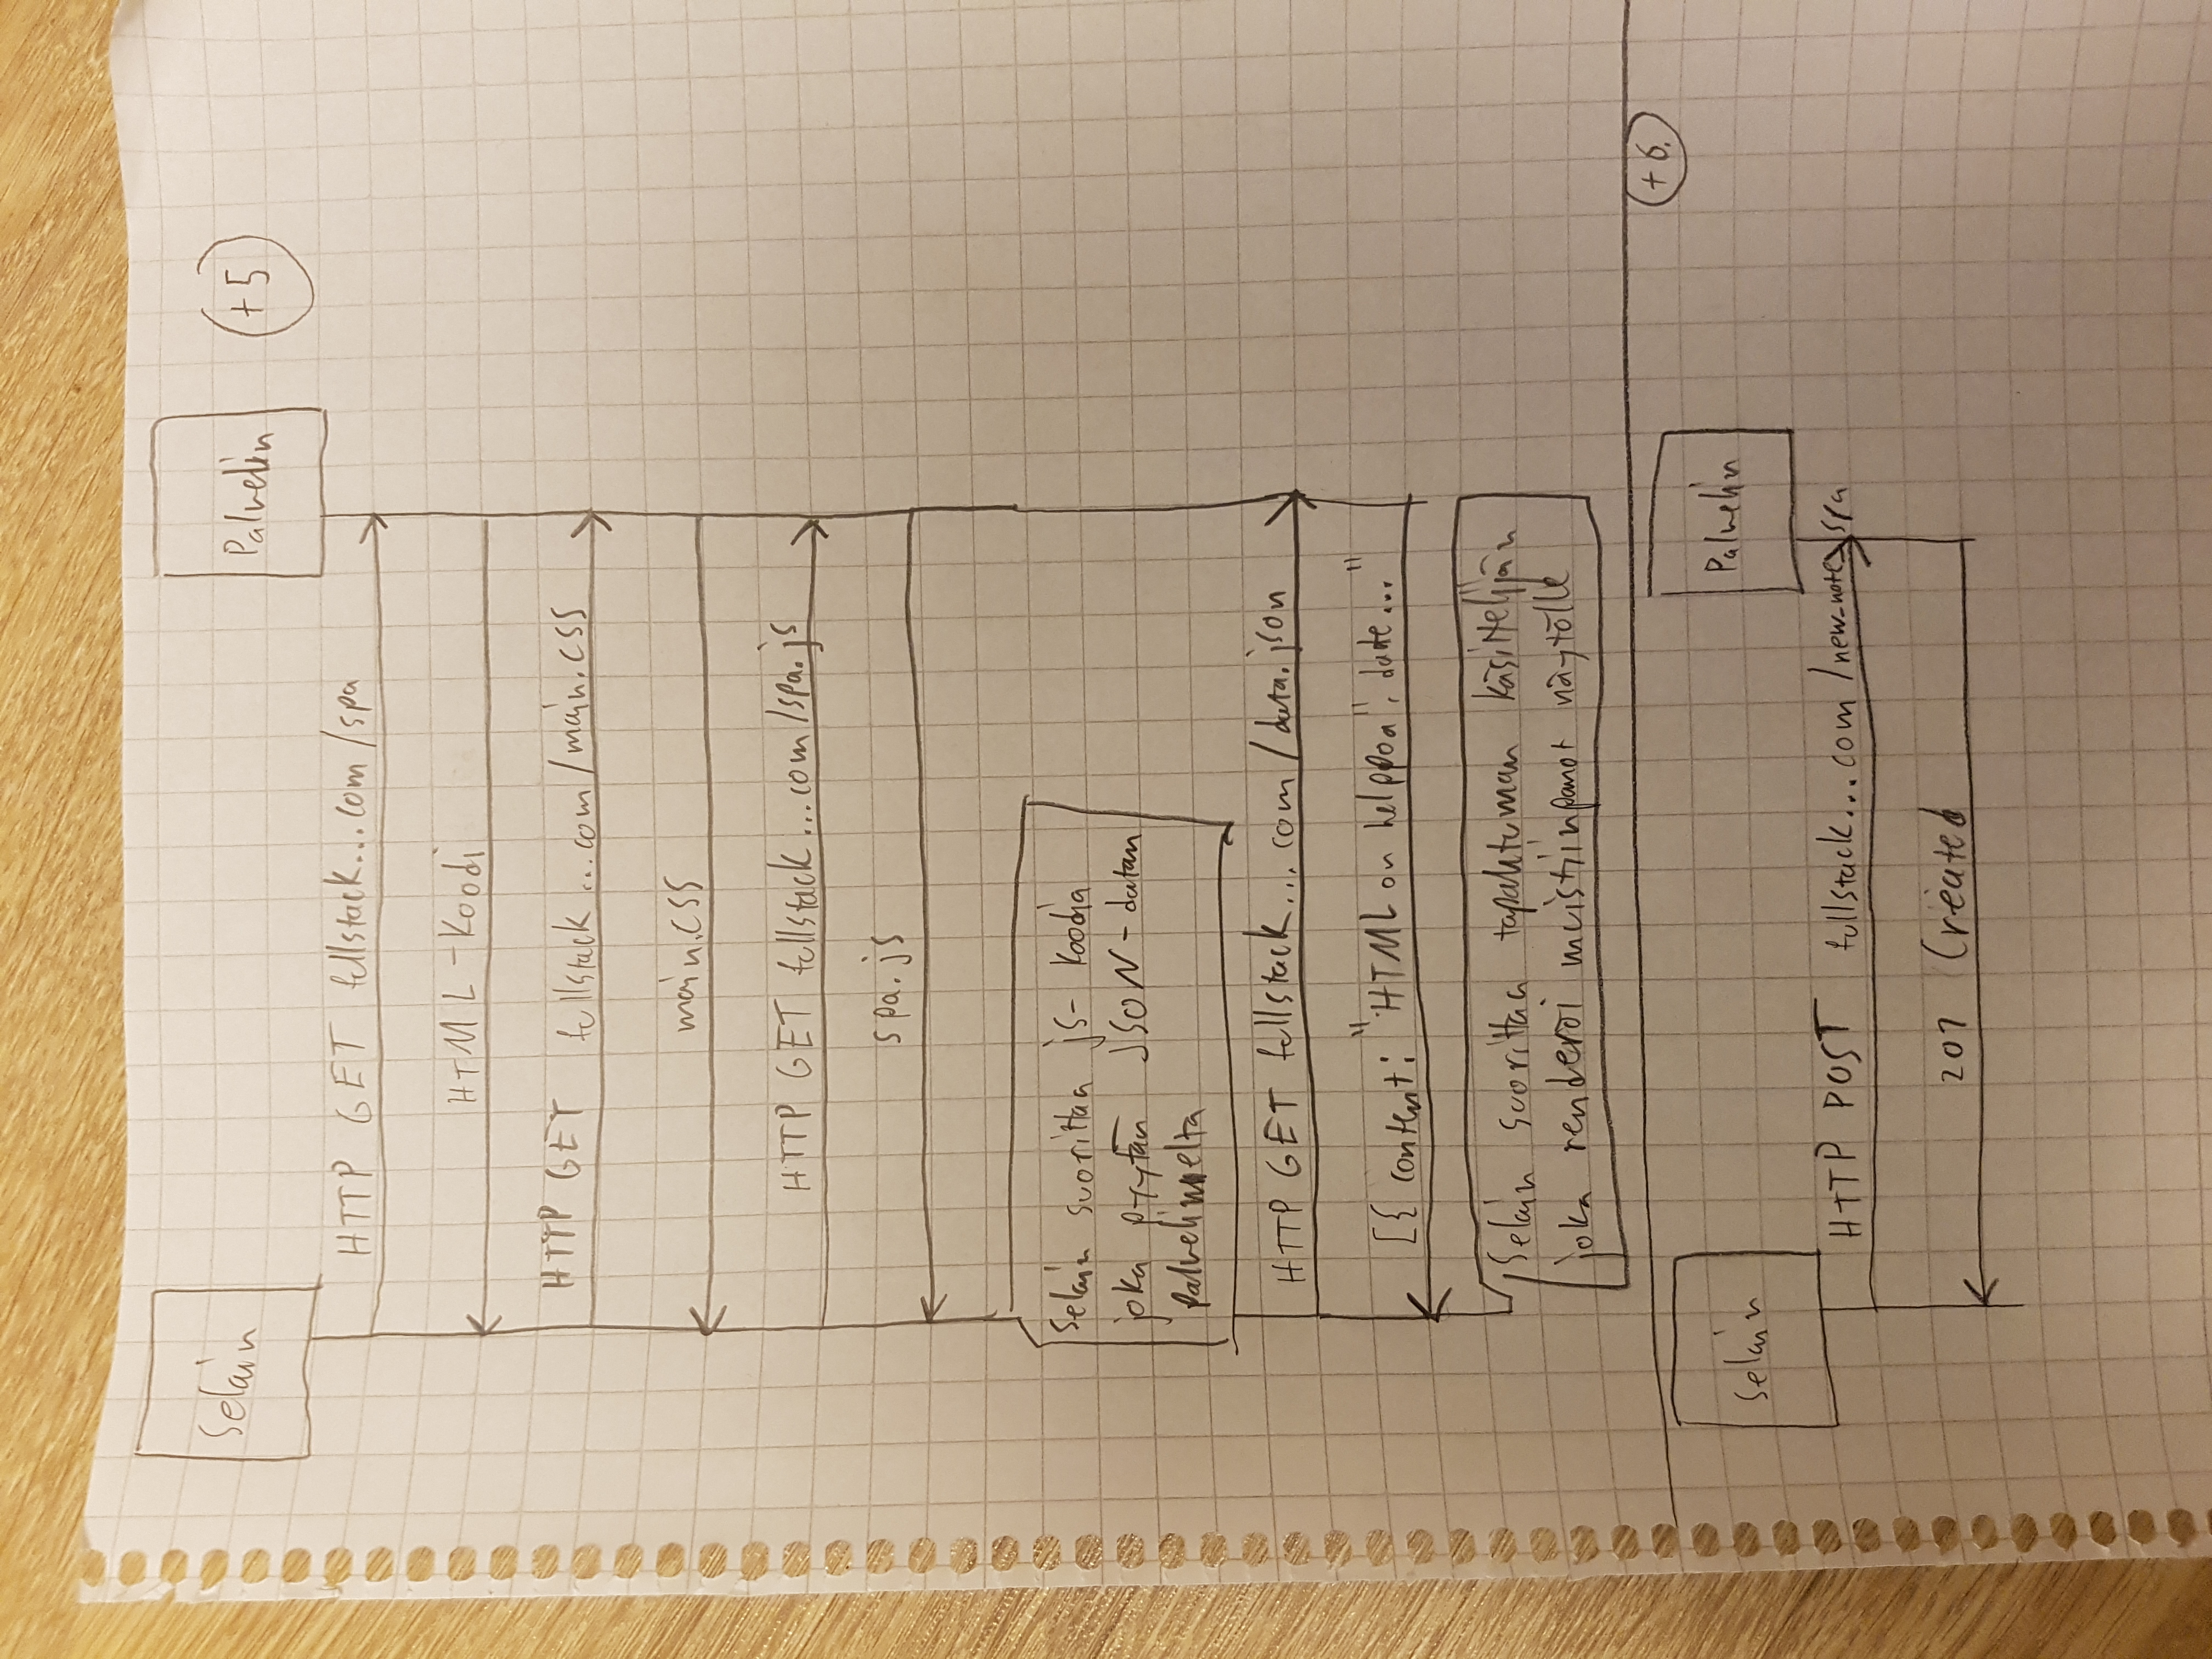 Selain
Palvelin
+5
HTTP GET fullstack...com/spa
HTML-koodi
HTTP GET fullstack...com/main.css
main.css
HTTP GET fullstack...com/spa.js
spa.js
Selain suorittaa js-koodia
joka pyytää JSON-datan
palvelimelta
HTTP GET fullstack...com/data.json
[{ content: "HTML on helppoa", date..."
Selain suorittaa tapahtuman käsittelijän
joka renderöi muistiinpanot näytölle
+6.
Selain
Palvelin
HTTP POST fullstack...com/new_note_spa
201 Created